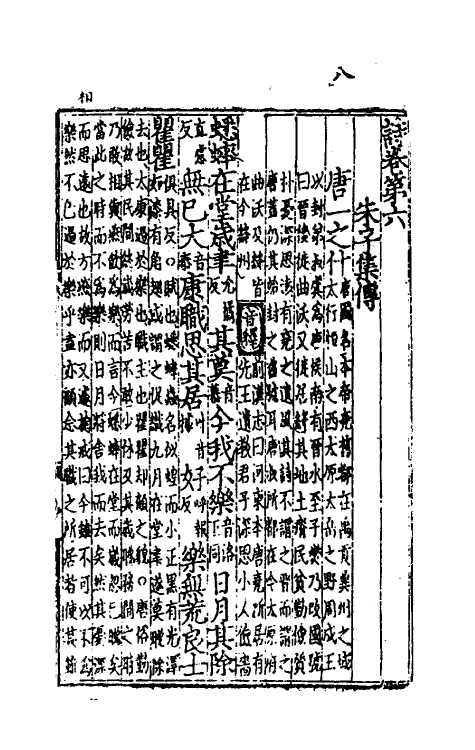 八
相
詩卷第六
朱子集傳
唐一之什
唐國名本帝堯舊都在禹貢冀州之域
太行恒山之西太原太岳之野周成王
以封弟叔虞為唐侯南有晉水至子燮乃改國號
曰晉後徙曲沃又徙居絳其地土瘠民貧勤儉質
朴憂深思遠有堯之遺風焉其詩不謂之晉而謂之
唐蓋仍其始封之舊號耳唐叔所都在今太原府
曲沃及絳皆
在今絳州
音釋
前漢志曰河東本唐堯所居有
先王遺教君子深思小人儉嗇
蟋蟀在堂歲聿允橘反其莫音暮今我不樂音洛下同日月其除
直慮反無已大音泰康職思其居叶音據好呼報反樂無荒良士
瞿瞿俱具反○賦也蟋蟀蟲名似蝗而小正黑有光澤
如漆有角翅或謂之促織九月在堂聿遂莫晚除
去也大康過於樂也職主也瞿瞿却顧之貌○唐俗勤
儉故其民間終歲勞苦不敢少休及其歲晚務閒之時
乃敢相與燕飲為樂而言今蟋蟀在堂而歲忽已晚矣
當此之時而不為樂則日月將舍我而去矣然其憂深
而思遠也故方燕樂而又遽相戒曰今雖不可以不為
樂然不已過於樂乎盍亦顧念其職之所居者使其雖